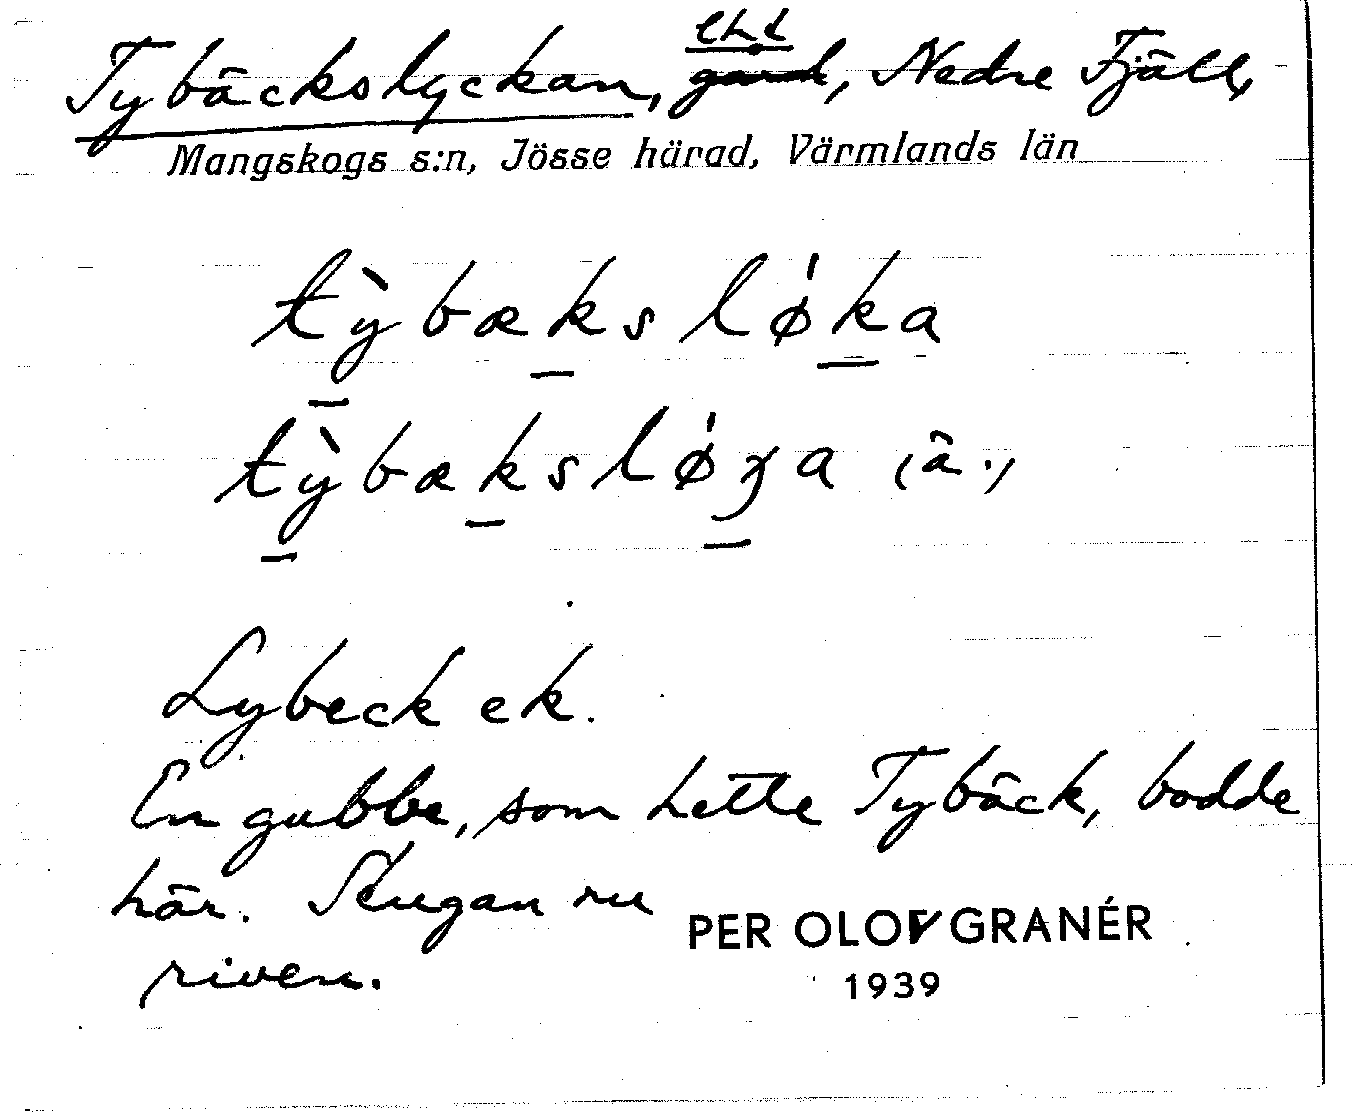 Tybäckslyckan, lht gård, Nedre Fjäll,
Mangskogs s:n, Jösse härad, Värmlands län
tỳbæksløka
tỳbæksløɣa (ä.)
Lybeck ek.
En gubbe, som hette Tybäck, bodde
här. Stugan nu
riven.
PER OLOV GRANÉR
1939